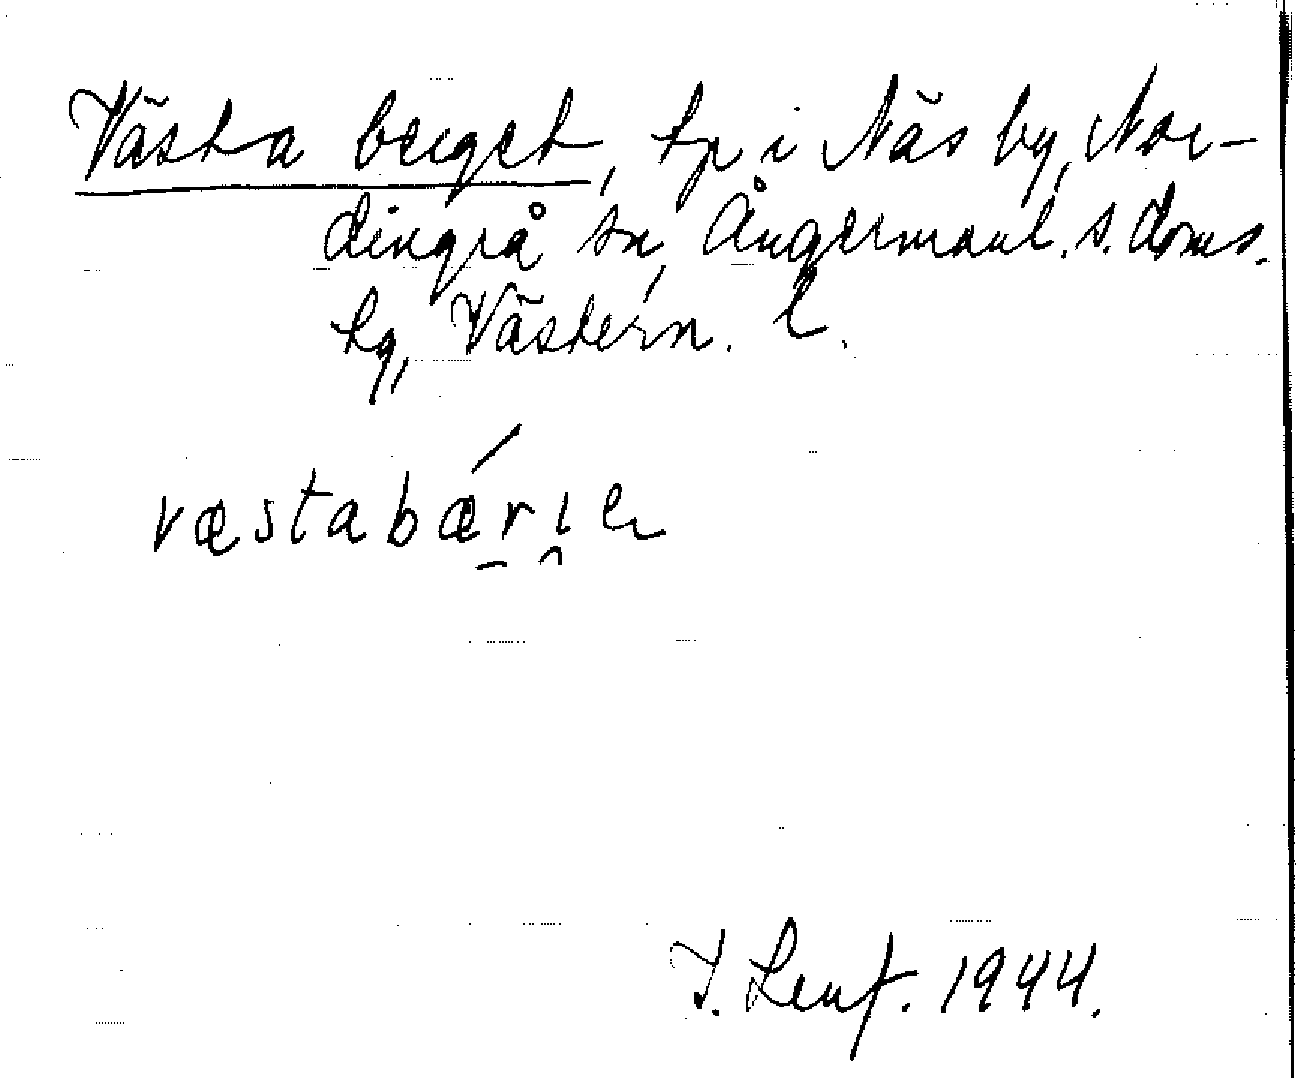 Västa berget, tp i Näs by, Nor-
dingrå sn, Ångermanl. s. doms.
tg, Västern. l.
væstabǽrıe
I. Lenf. 1944.